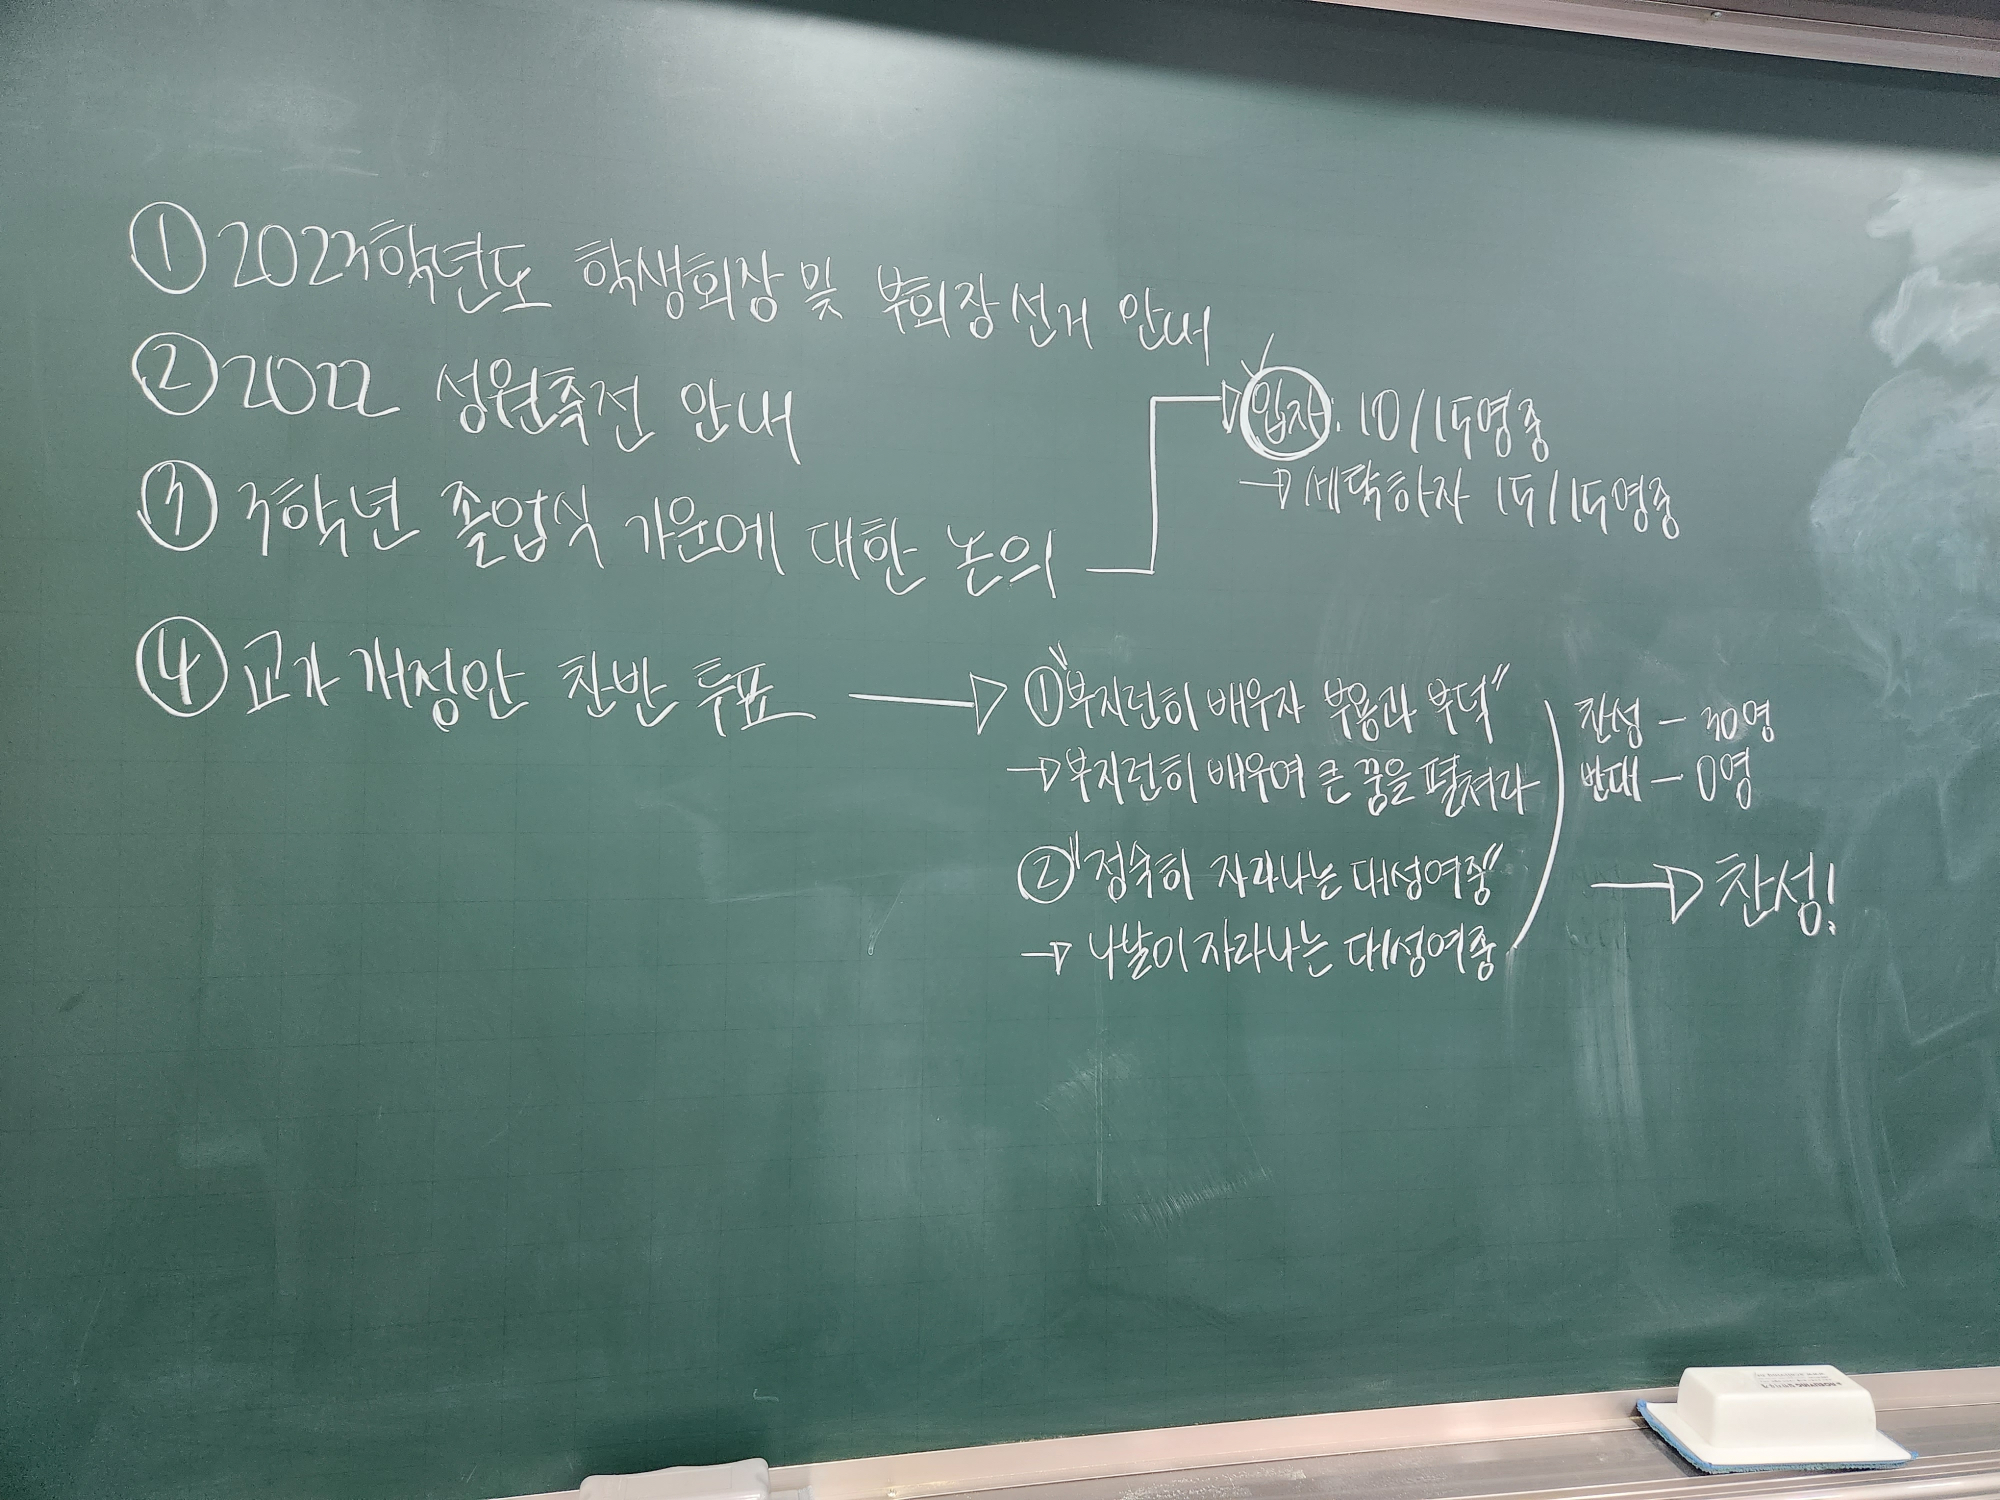 ① 2023학년도 학생회장 및 부회장 선거 안내
② 2022 성원축전 안내
③ 3학년 졸업식 가운에 대한 논의
입자: 10/15명중
→ 세탁하자 15/15명중
④ 교가 개정안 찬반 투표 →
① "부지런히 배우자 부용과 부덕"
→ 부지런히 배우여 큰 꿈을 펼쳐라
② "정숙히 자라나는 대성여중"
→ 나날이 자라나는 대성여중
찬성 - 30명
반대 - 0명
→ 찬성!